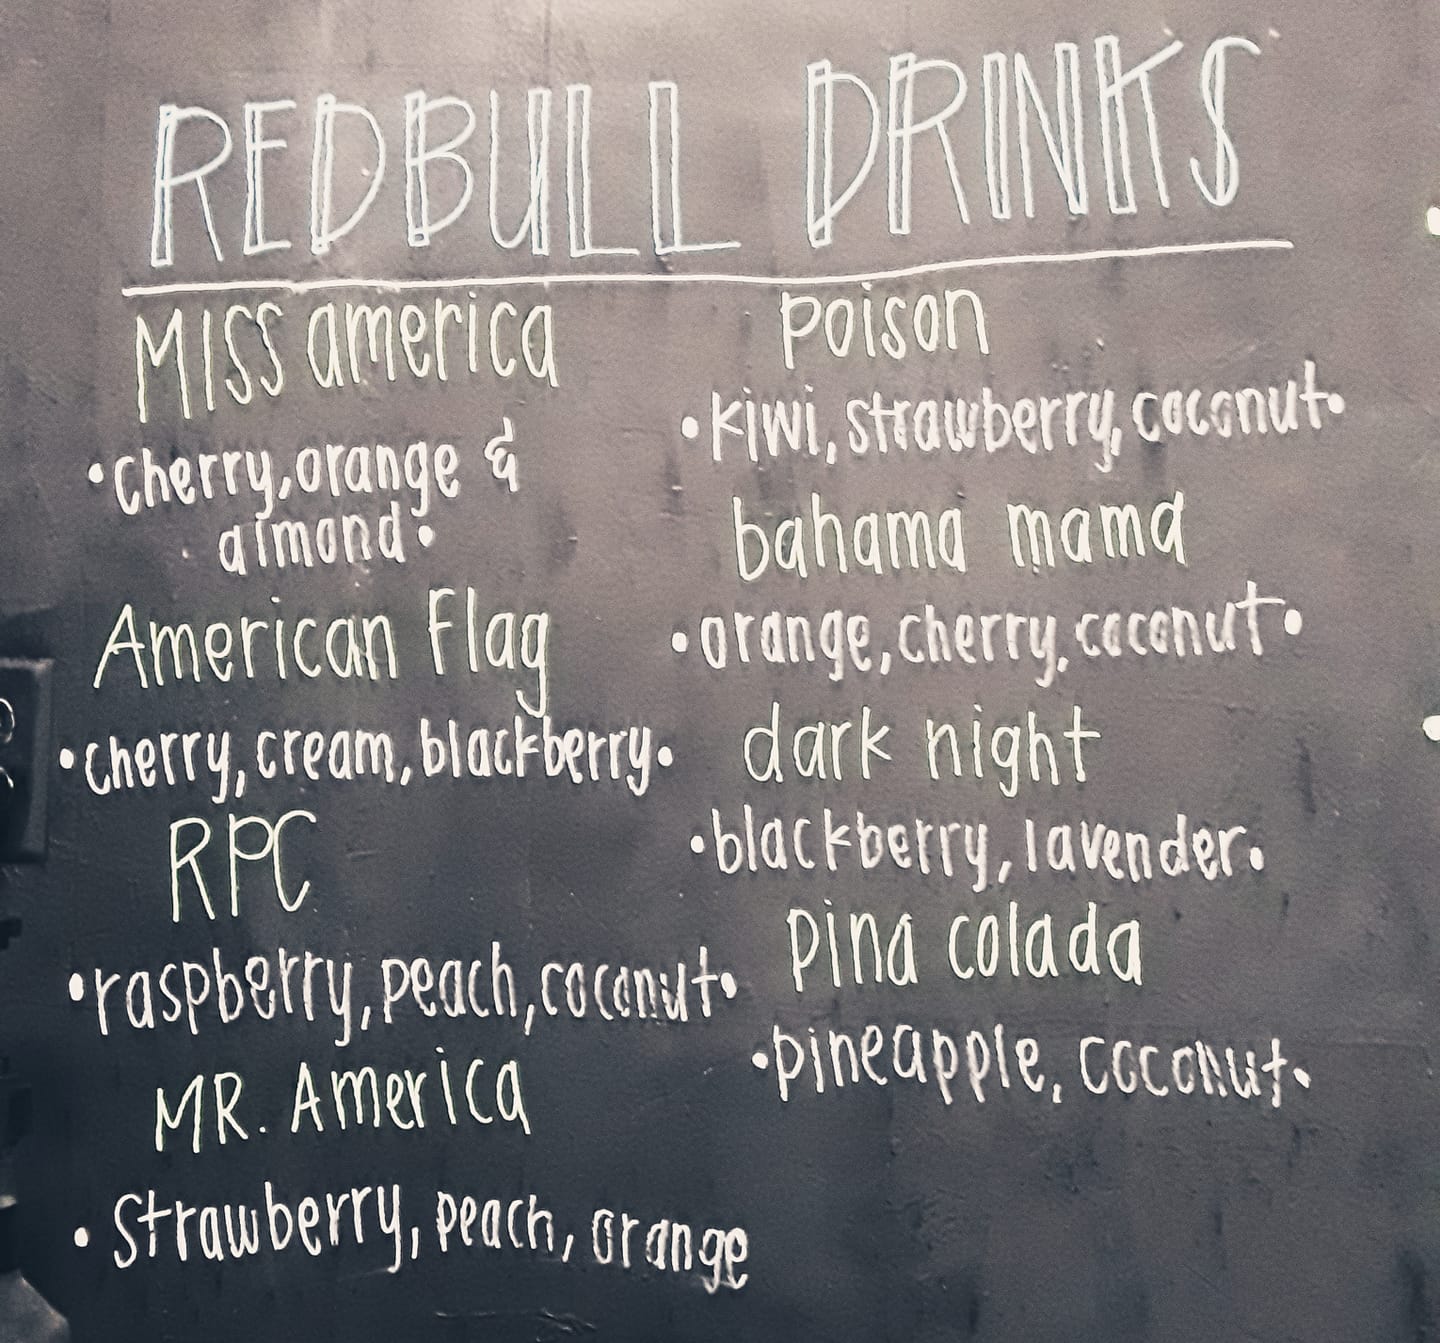 REDBULL DRINKS
MISS america
•cherry, orange &
almond•
American Flag
•cherry, cream, blackberry•
RPC
•raspberry, peach, coconut•
MR. America
• Strawberry, peach, orange
poison
•kiwi, strawberry, coconut•
bahama mama
•orange, cherry, coconut•
dark night
•blackberry, lavender•
pina colada
•pineapple, coconut•